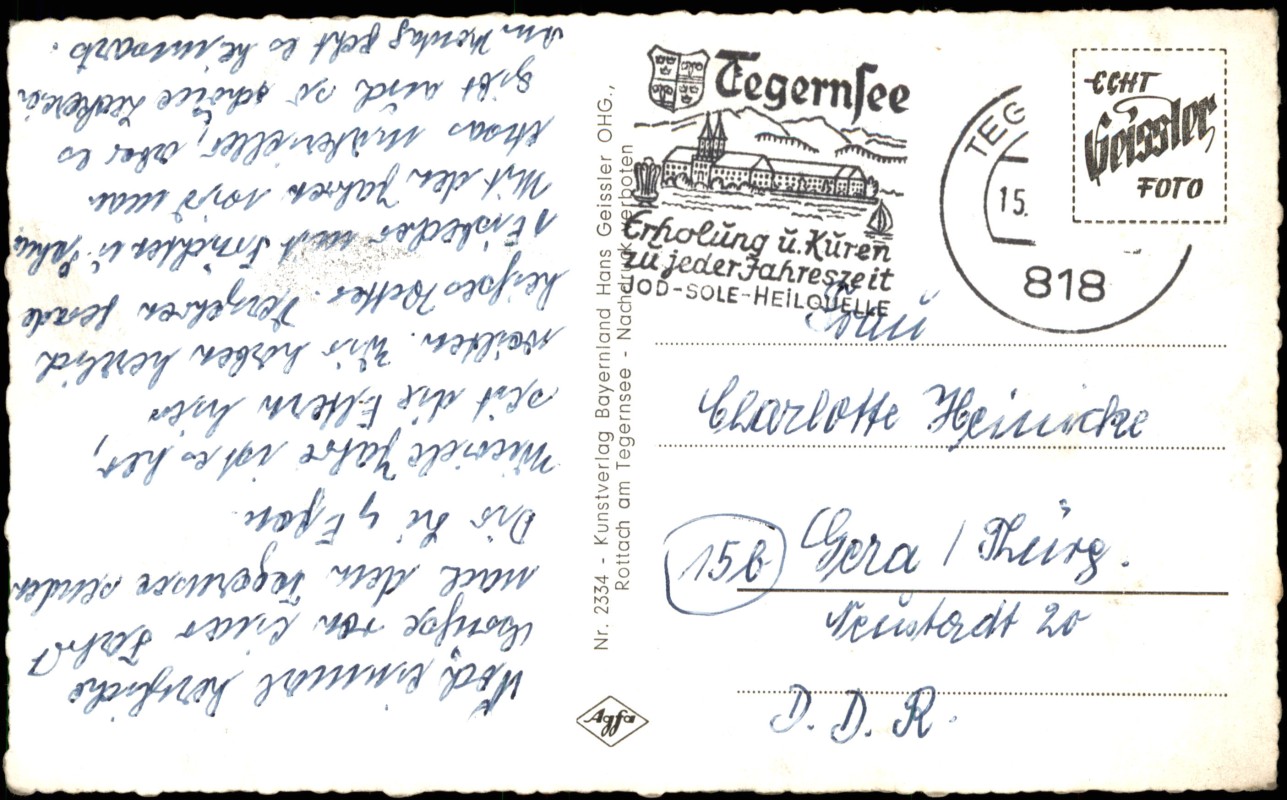 Noch einmal herzliche
Grüße von einer Fahrt
nach dem Tegernsee senden
Dir Li u Egon.
Wieviele Jahre ist es her,
seit die Eltern hier
weilten. Wir haben herrlich
heißes Wetter. Verzehren gerade
1 Eisbecher mit Früchten u. Sahne
Mit den Jahren wird man
etwas materieller, aber es
gibt auch so schöne Leckerei
Am Montag geht es heimwärts.
Nr. 2334 - Kunstverlag Bayernland Hans Geissler OHG.,
Rottach am Tegernsee - Nachdruck verboten
Agfa
Tegernsee
Erholung u. Kuren
zu jeder Jahreszeit
JOD-SOLE-HEILQUELLE
TEG
15.
818
ECHT
Geissler
FOTO
Frau
Charlotte Heinicke
15b Gera / Thürg.
Neustadt 20
D. D. R.